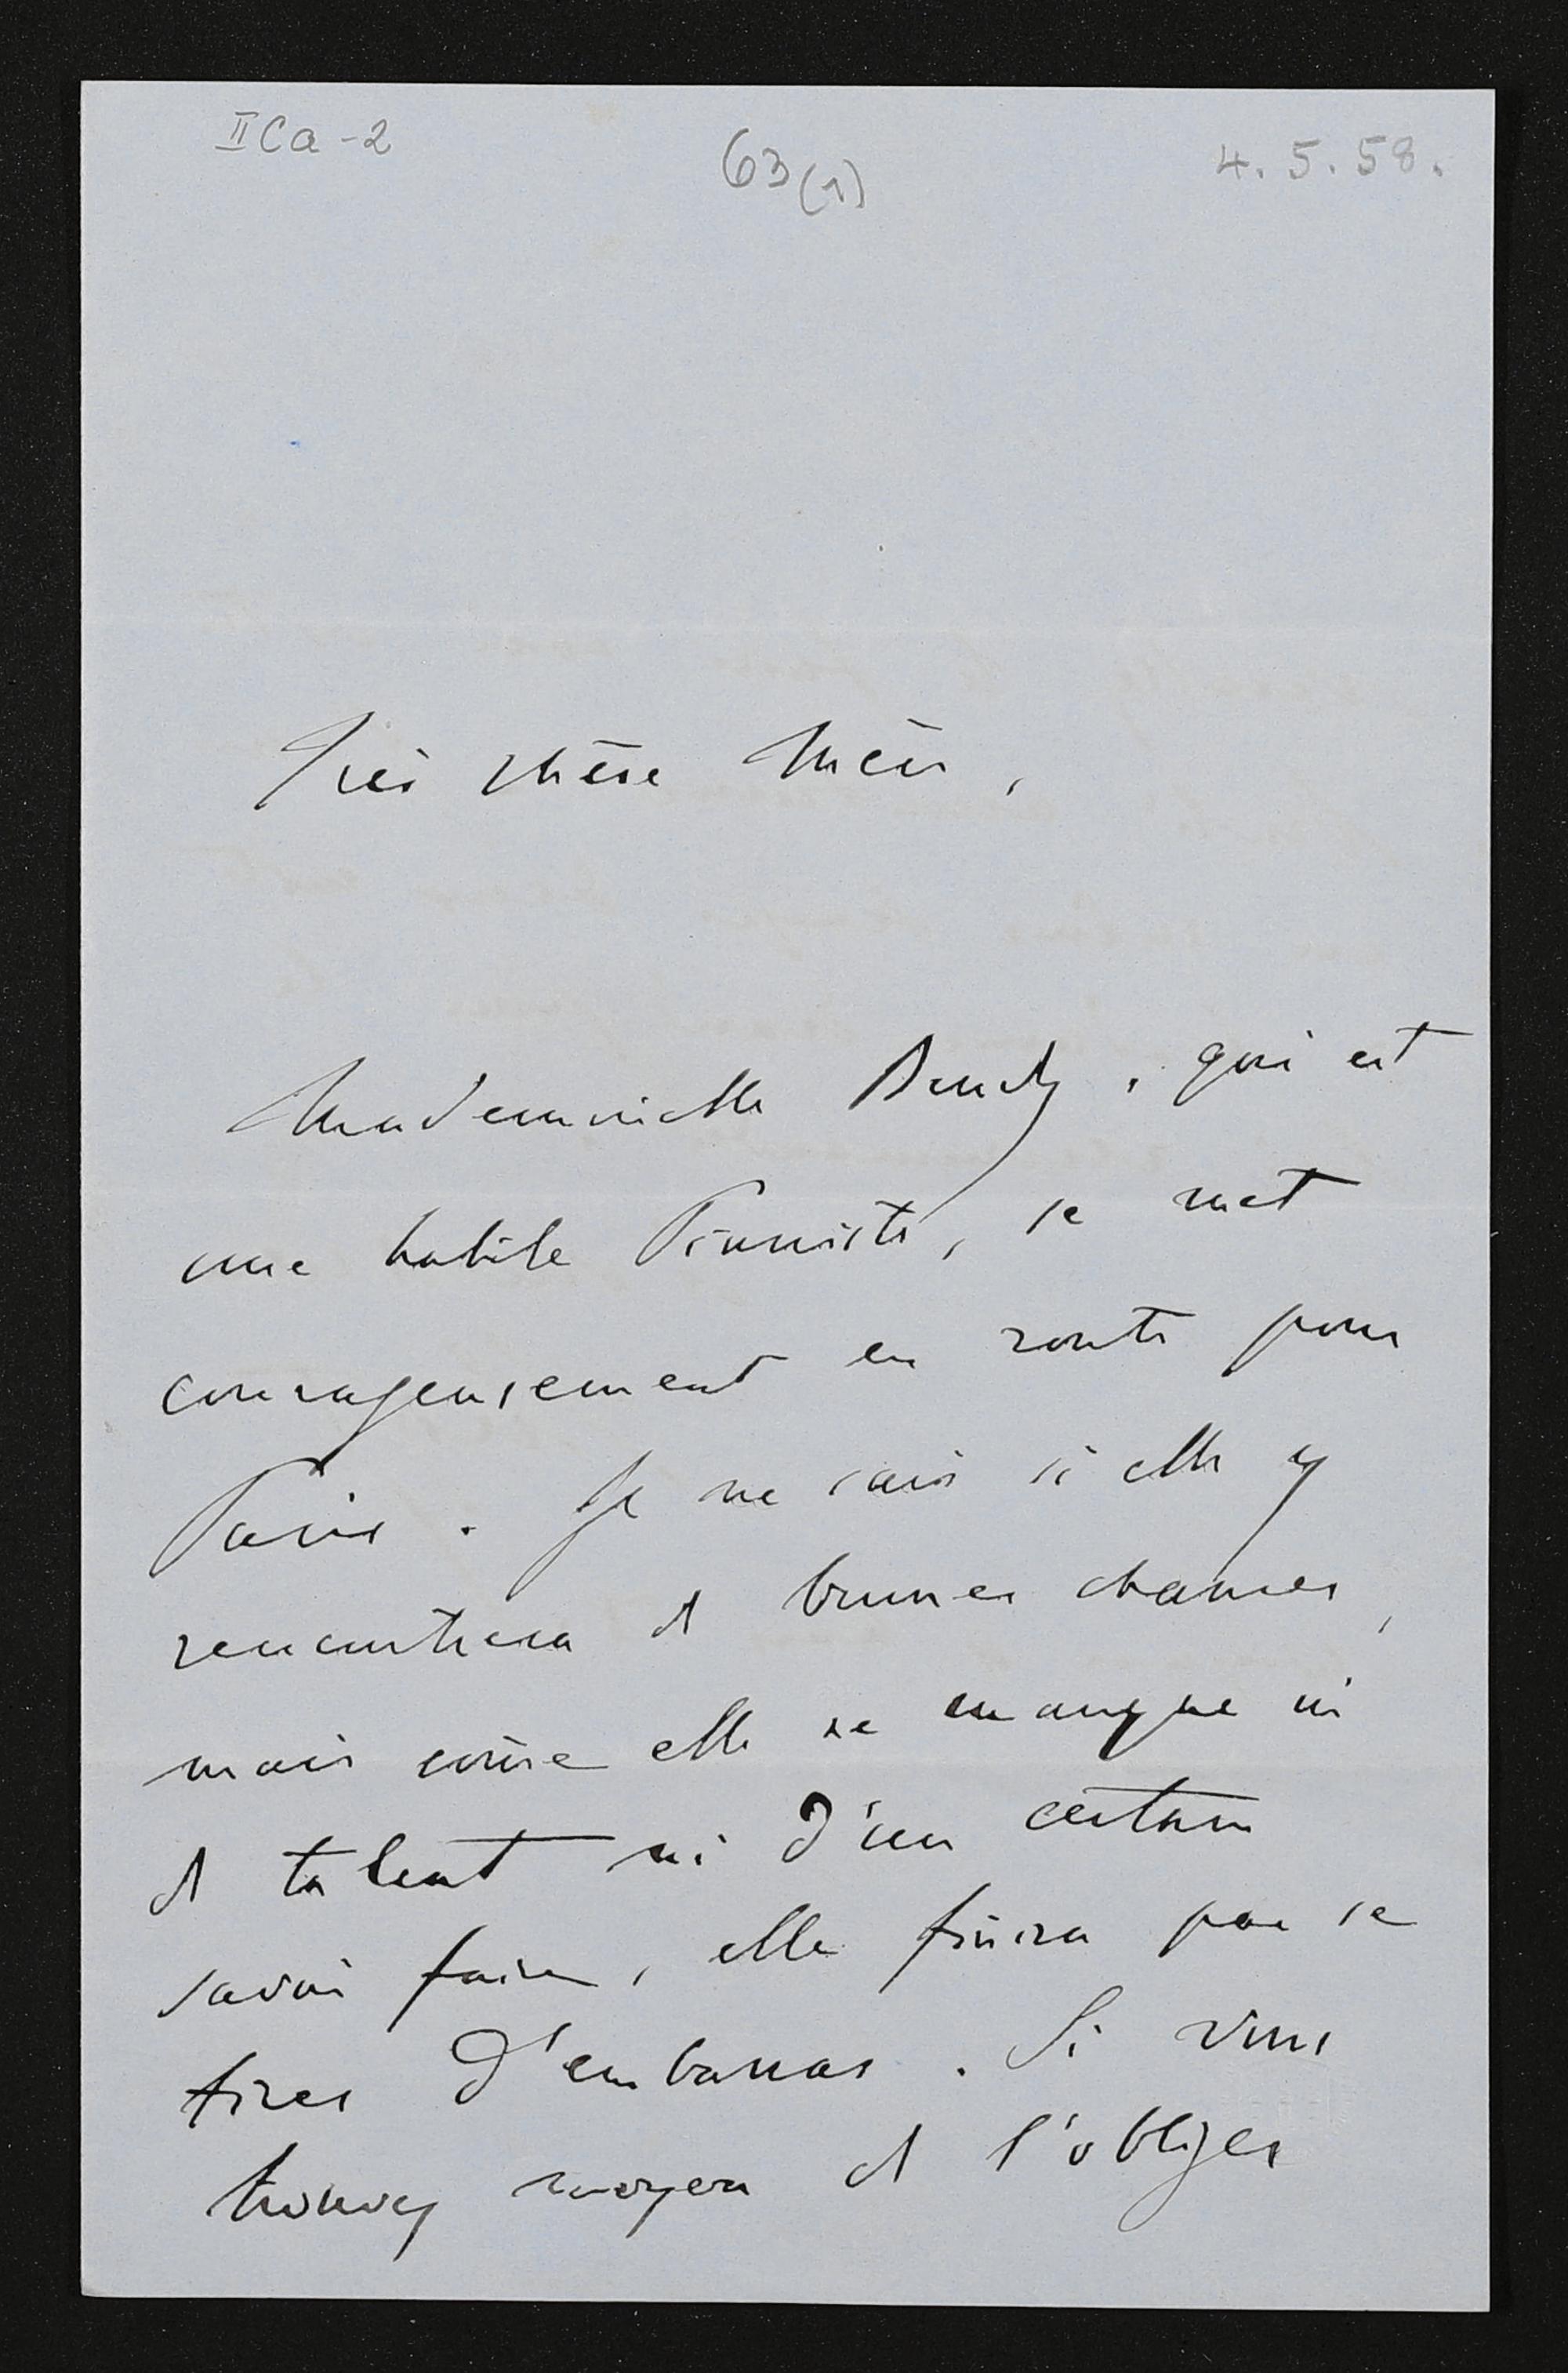 IICa-2
63(1)
4. 5. 58.
Très chère Mère,
Mademoiselle, qui est
une habile Pianiste, se met
courageusement en route pour
Paris. Je ne sais si elle y
rencontrera de bonnes chances,
mais come elle ne manque ni
de talent ni d'un certain
savoir faire, elle finira par se
tirer d'embarras. Si vous
trouvez moyen de l'obliger